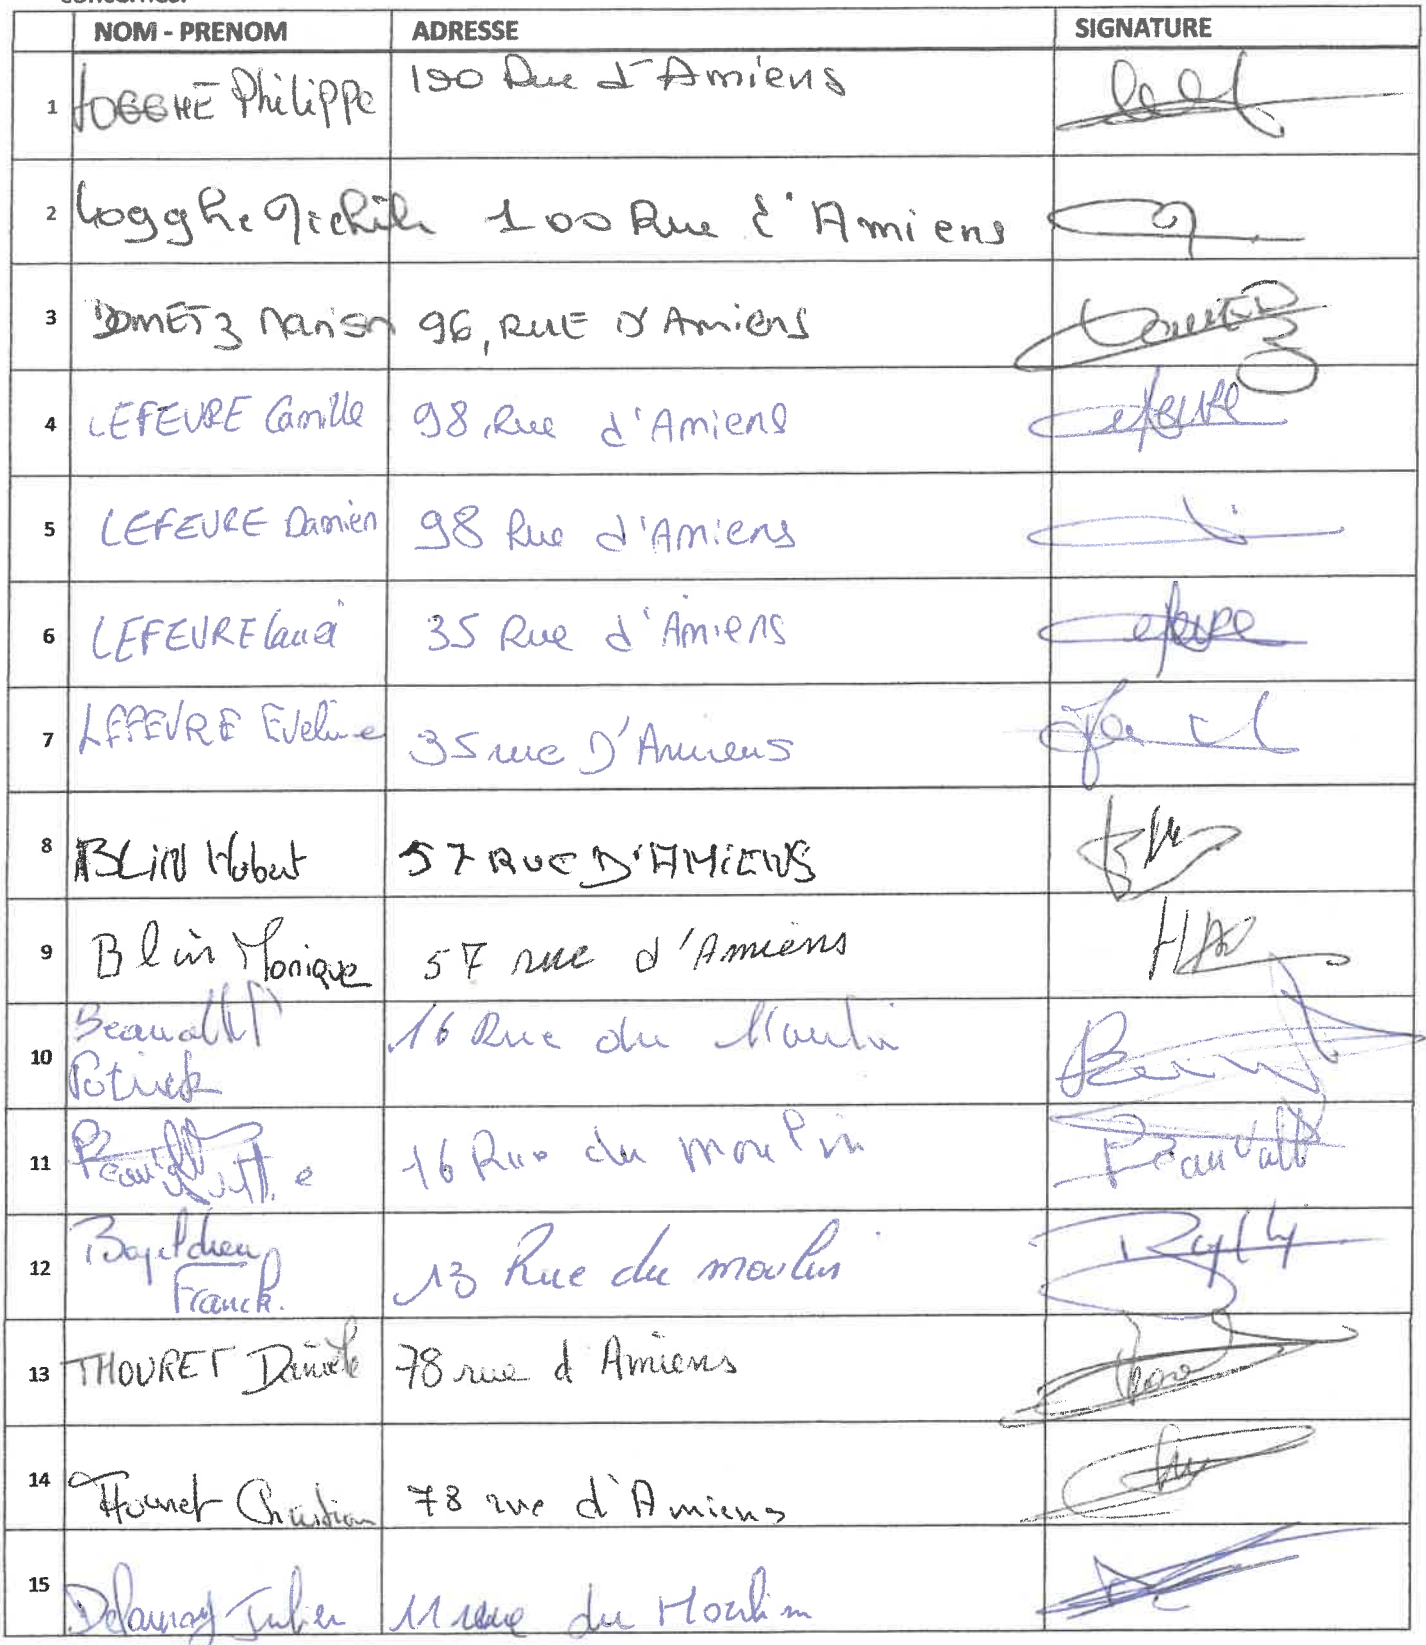 NOM - PRENOM ADRESSE SIGNATURE
1 LOGGHE Philippe 190 Rue d'Amiens
2 Logghe 100 Rue d'Amiens
3 DOMETZ 96, RUE D'Amiens
4 LEFEVRE Camille 98, Rue d'Amiens Lefevre
5 LEFEVRE Damien 98 Rue d'Amiens
6 LEFEVRE 35 Rue d'Amiens Lefevre
7 LEFEVRE Eveline 35 rue D'Amiens
8 BLIN Hubert 57 RUE D'AMIENS
9 Blin Monique 57 rue d'Amiens
10 Beauvallet 16 Rue du Moulin
Patrick
11 16 Rue du moulin
12 13 Rue du moulin
Franck.
13 THOURET Danièle 78 rue d'Amiens
14 Thouret Christian 78 rue d'Amiens
15 Delaunay Julien 11 rue du Moulin